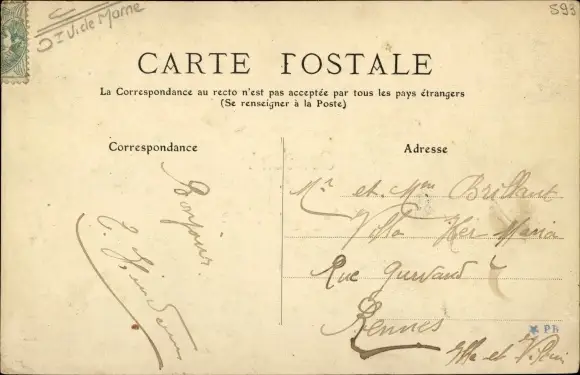 D I V. de Marne
S93
CARTE POSTALE
La Correspondance au recto n'est pas acceptée par tous les pays étrangers
(Se renseigner à la Poste)
Correspondance
Bonjour.
Adresse
Mr et Mme Brillant
Villa Ker Maria
Rue
Rennes
Ille et Vilaine
PB